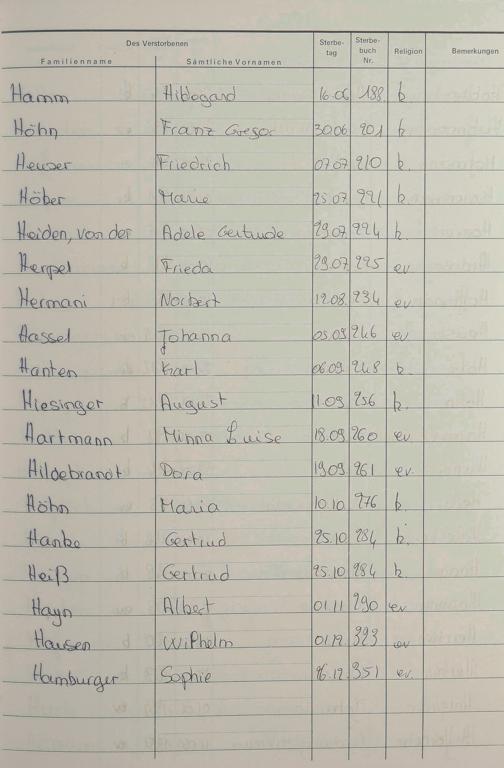 Des Verstorbenen Sterbe-tag Sterbe-buch Nr. Religion Bemerkungen
Familienname Sämtliche Vornamen
Hamm Hildegard 16.06 188 k.
Höhn Franz Gregor 30.06. 201 k.
Heuser Friedrich 07.07 210 k.
Höber Marie 25.07. 221 k.
Heiden, von der Adele Gertrude 29.07. 224 k.
Herpel Frieda 29.07. 225 ev.
Hermani Norbert 12.08. 234 ev.
Hassel Johanna 05.09. 246 ev.
Hanten Karl 06.09. 248 k.
Hiesinger August 11.09 256 k.
Hartmann Minna Luise 18.09. 260 ev.
Hildebrandt Dora 19.09. 261 ev.
Höhn Maria 10.10. 276 k.
Hanke Gertrud 25.10. 284 k.
Heiß Gertrud 25.10. 284 k.
Hayn Albert 01.11 290 ev.
Hausen Wilhelm 01.12. 323 ev.
Hamburger Sophie 26.12. 351 ev.